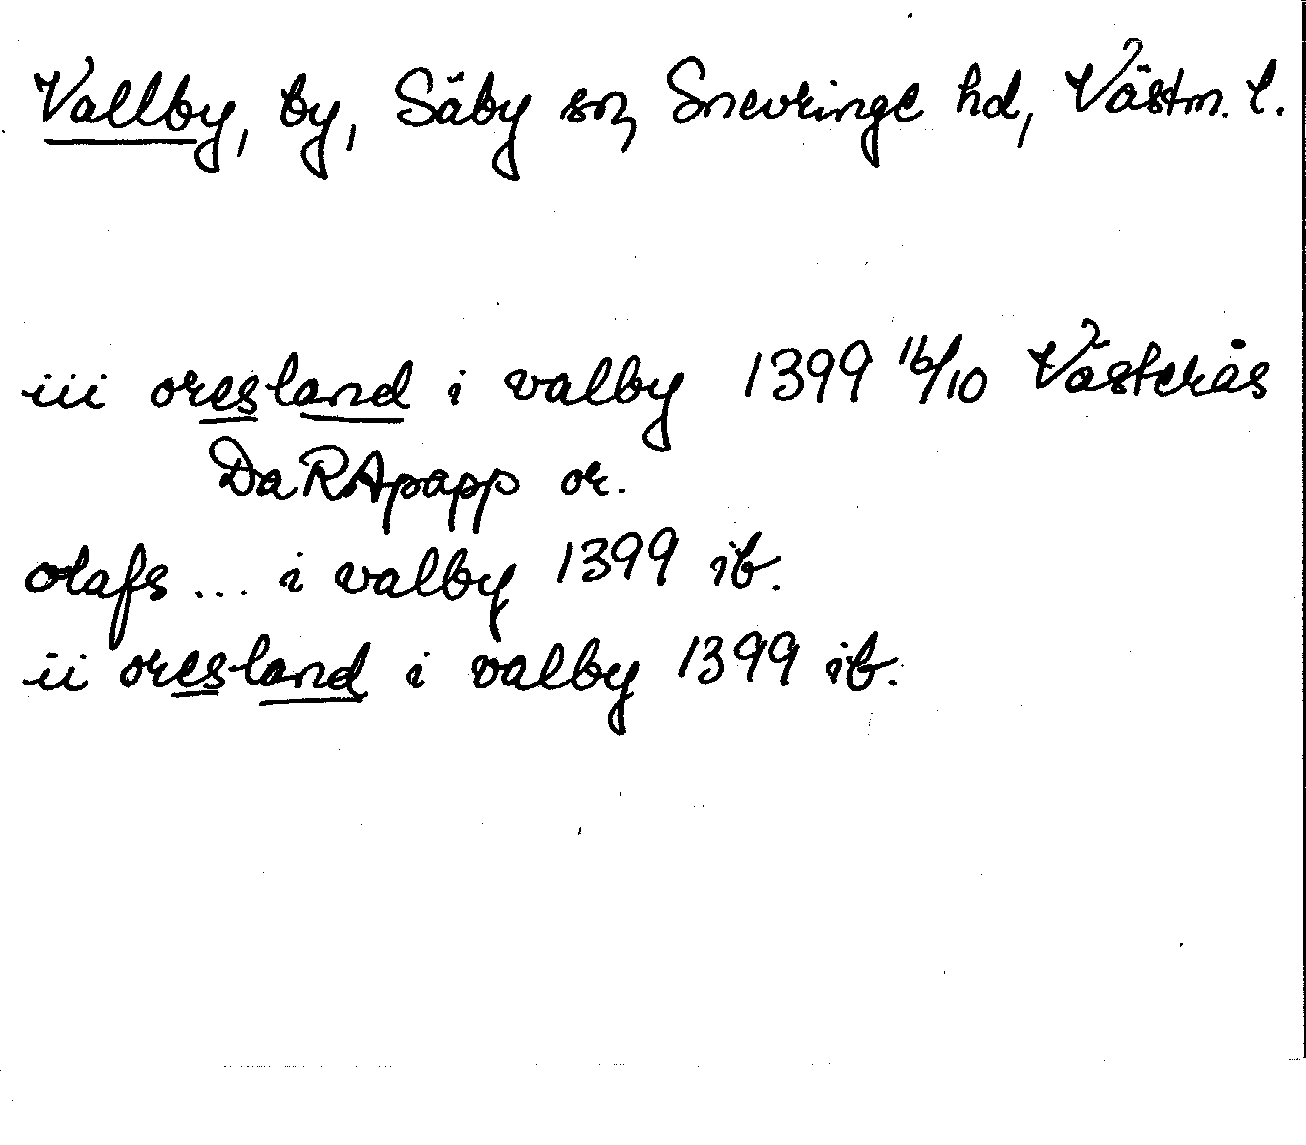 Vallby, by, Säby sn, Snevringe hd, Västm. l.
iii oresland i valby 1399 16/10 Västerås
Da RApapp or.
olafs ... i valby 1399 ib.
ii oresland i valby 1399 ib.